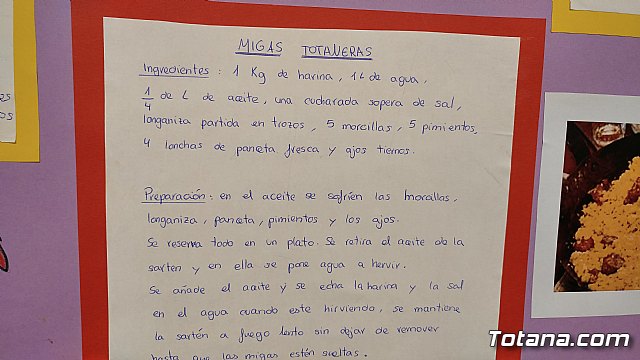 MIGAS TOTANERAS
Ingredientes: 1 Kg de harina, 1L de agua,
1/4 de L de aceite, una cucharada sopera de sal,
longaniza partida en trozos, 5 morcillas, 5 pimientos,
4 lonchas de panceta fresca y ajos tiernos.
Preparación: en el aceite se sofríen las morcillas,
longaniza, panceta, pimientos y los ajos.
Se reserva todo en un plato. Se retira el aceite de la
sarten y en ella se pone agua a hervir.
Se añade el aceite y se echa la harina y la sal
en el agua cuando este hirviendo, se mantiene
la sartén a fuego lento sin dejar de remover
hasta que las migas estén sueltas.
Totana.com